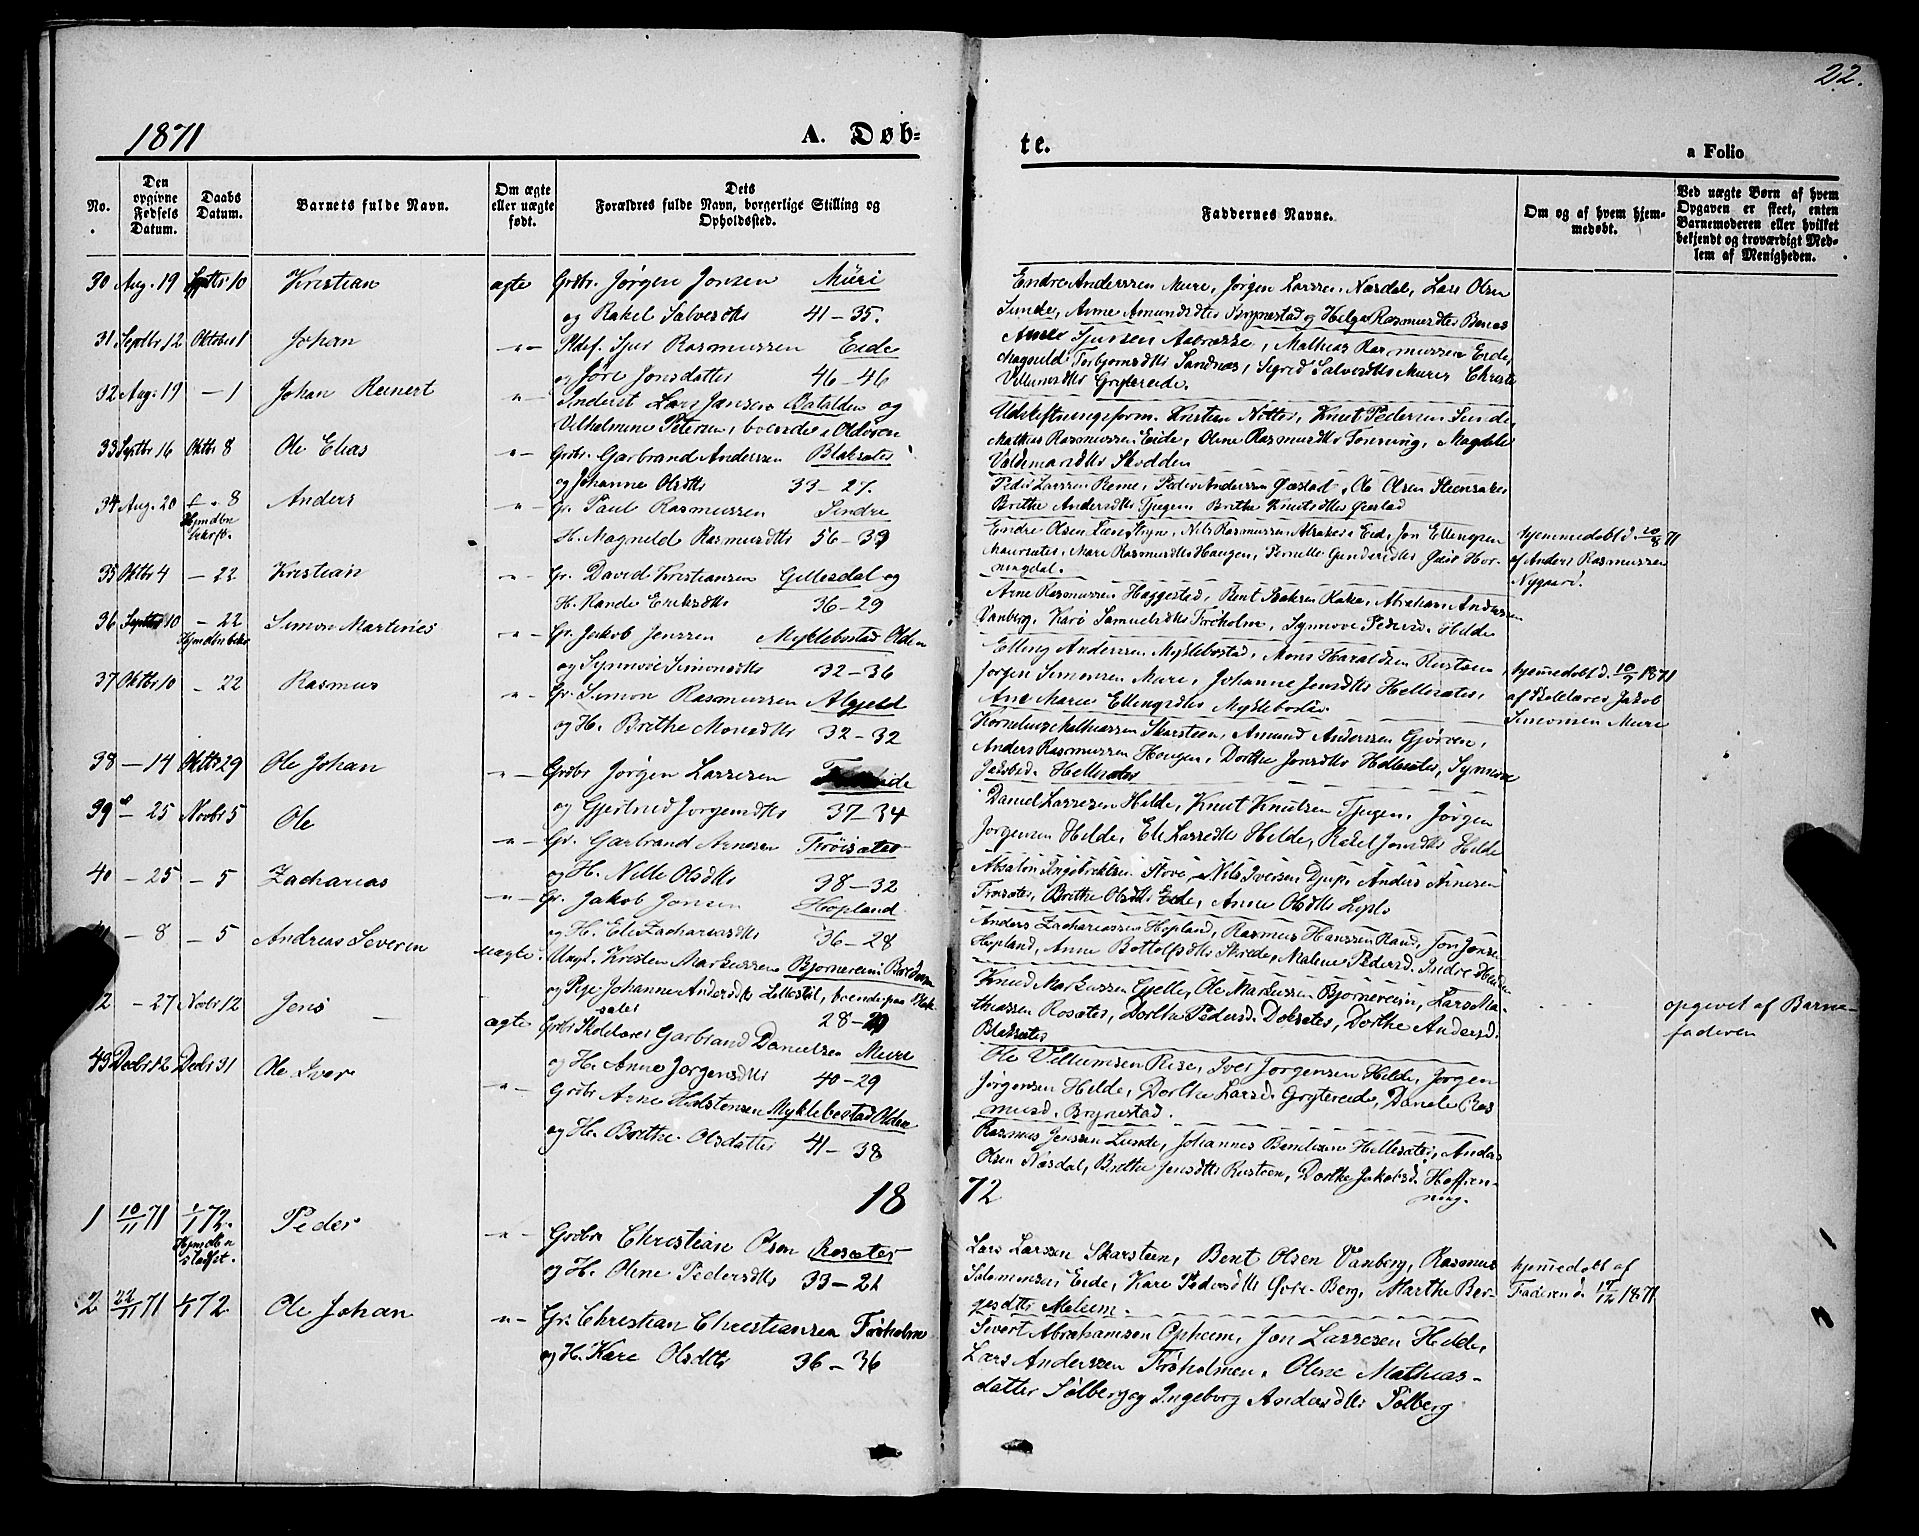 22.
1871 A. Døb- te. a Folio
No.
Den opgivne Fødsels Datum.
Daabs Datum.
Barnets fulde Navn.
Om ægte eller uægte født.
Dets Forældres fulde Navn, borgerlige Stilling og Opholdssted.
Faddernes Navne.
Om og af hvem hjemmedøbt.
Ved uægte Børn af hvem Opgaven er skeet, enten Barnemoderen eller hvilket bekjendt og troværdigt Medlem af Menigheden.
30 Aug. 19 Septbr 10 Kristian ægte Grdbr. Jørgen Jonsen Muri
og Rakel Salvesdtr 41-35.
Endre Anderssen Mure, Jørgen Larssen Næsdal, Lars Olsen
Sunde, Anne Amundsdtr Brynestad og Helga Rasmusdtr Benes
31 Septbr 12 Oktober 1 Johan -"- Rasmussen Eide
og Jonsdatter 46-46
Mathias Rasmussen Eide,
Magnild Torbjørnsdtr Sandnæs, Sigrid Salvesdtr Mure Christi
Villumsdtr Grytereide.
32 Aug. 19 -1 Johan Reinert -"- Lars Jansen Batalden og
Vilhelmine Petersen, boende i Oldøren
Kristian Nøtter, Knut Pedersen Sunde
Mathias Rasmussen Eide, Oline Rasmusdtr Tonning, Magdele
Valdemarsdtr Skodden
33 Septbr 16 Oktbr 8 Ole Elias -"- Grbr. Garbrand Anderssen Blaksæter
og Johanne Olsdtr 33-27.
Peder Larssen Reme, Peder Anderssen Ole Olsen Steensæter
Brithe Andersdtr Tjugen Brithe Knutsdtr
34 Aug. 20 -"-8 Anders -"- Gr. Paul Rasmussen Sindre
H. Magnild Rasmusdtr 56-39
Endre Olsen Nils Rasmussen Eide, Jon Ellingsen
Maursæter, Mari Rasmusdtr Haugen, Pernille Gundersdtr Hor-
ningdal.
hjemmedøbt d. 20/8 71
af Anders Rasmussen
Nygaard.
35 Oktbr 4 -22 Kristian -"- Gr. David Kristiansen Gillesdal og
H. Rande Eriksdtr 36-29
Arne Rasmussen Haggestad, Bent Isaksen Kake, Abraham Anderssen
Vanberg, Kari Samuelsdtr Frøholm, Synnøve Pedersd. Hilde
36 Septbr 10 -22 Simon Martinius -"- Gr. Jakob Jenssen Myklebostad Olden
og Synnøve Simonsdtr 32-36
Elling Anderssen Myklebostad, Mons Haraldsen Rustøen,
Jørgen Simonsen Mure, Johanne Jensdtr Hellesæter,
Ane Marie Ellingsdtr Myklebostad
hjemmedøbt d. 10/9 1871
af Skolelærer Jakob
Simonsen Mure
37 Oktbr 10 -22 Rasmus -"- Gr. Simon Rasmussen Aljeld
og H. Brithe Monsdtr 32-32
Kornelius Mathiassen Skarsteen, Amund Anderssen Gjørven,
Anders Rasmussen Haugen, Dorthe Jonsdtr Hellesæter, Synnøve
Jakobsd. Hellesæter
38 -14 Oktbr 29 Ole Johan -"- Grdbr Jørgen Larssen
og Gjertrud Jørgensdtr 37-34
Daniel Larssen Hilde, Knut Knutsen Tjugen, Jørgen
Jørgensen Hilde, Eli Larsdtr Hilde, Rakel Jonsdtr Hilde
39 -25 Novbr 5 Ole -"- Gr. Garbrand Arnesen Frøisæter
og H. Nille Olsdtr 38-32
Absalon Ingebrektsen Nils Iversen Anders Arnesen
Brithe Olsdtr Eide, Anne Olsdtr
40 -25 -5 Zacharias -"- Gr. Jakob Jonsen Hopland.
og H. Eli Zachariasdtr 36-28
Anders Zachariassen Hopland, Rasmus Hanssen Rand, Jon Jonsen
Hopland, Anne Bottolfsdtr Skrede, Malene Pedersd. Indre
-8 -5 Andreas Severin uægte Ungk. Kristen Markussen Bjørnereim
og Pige Johanne Andersdtr boende paa Blak-
sæter 28-29
Knud Markussen Gjelle, Ole Markussen Bjørnereim, Lars Ma-
thiassen Rosæter, Dorthe Pedersd. Doksæter, Dorthe Andersd.
Blaksæter
opgivet af Barne-
faderen
-27 Novbr 12 Jens ægte Grdbr Skolelærer Garbrand Danielsen Mure
og H. Anne Jørgensdtr 40-29
Ole Villumsen Rise, Iver Jørgensen Hilde, Jørgen
Jørgensen Hilde, Dorthe Larsd. Grytereide, Danele Ras-
musd. Brynestad.
43 Decbr 12 Decbr 31 Ole Iver -"- Grdbr Arne Halstensen Myklebostad Olden
og H. Brithe Olsdatter 41-38
Rasmus Jenssen Lunde, Johannes Hellesæter, Anders
Olsen Næsdal, Brithe Jensdtr Rusteen, Dorthe Jakobsd.
1872
1 10/11 71 1/1 72. Peder -"- Grdbr Christian Olsen Rosæter
og H. Oline Pedersdtr 33-21
Lars Larssen Skarsteen, Bent Olsen Vanberg, Rasmus
Salomonsen Eide, Kari Pedersdtr Øvre-Berg, Marthe Bør-
gesdtr Melum.
hjemmedøbt af
Faderen d. 17/12 1871
2 22/11 71 1/1 72 Ole Johan -"- Gr. Christian Christiansen Frøholm
og H. Kari Olsdtr 36-36
Sivert Abrahamsen Opheim, Jon Larssen Hilde,
Lars Anderssen Frøholmen, Oline Mathias-
datter Solberg og Ingeborg Andersdtr Solberg